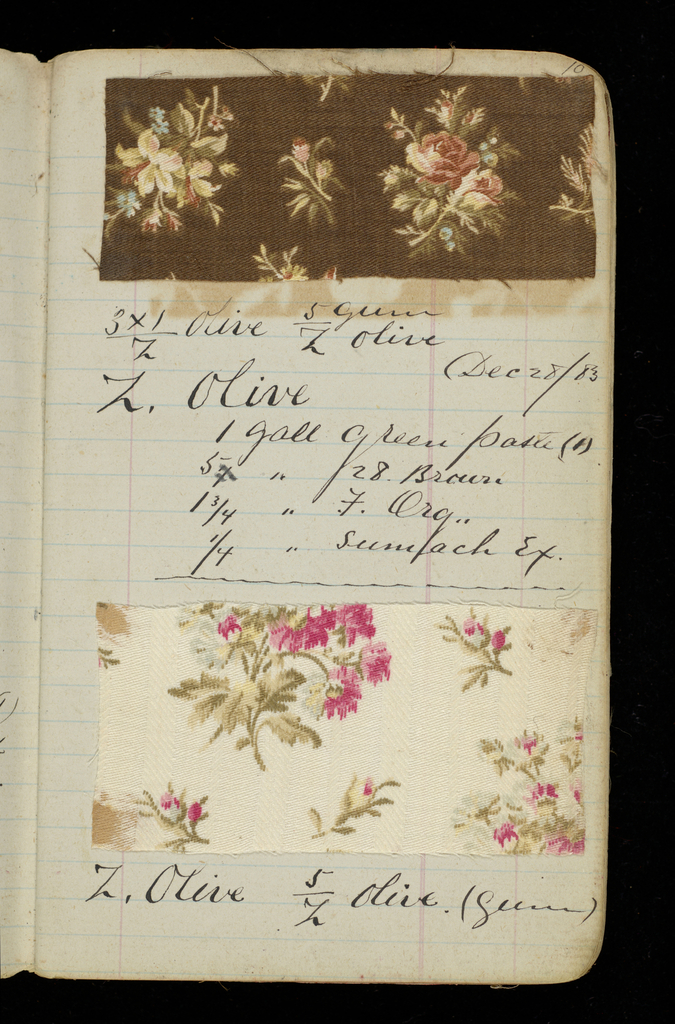 10
3x1/Z Olive 5/Z gum olive
(Dec 28/83
Z. Olive
1 gall Green paste (A)
5 " 28. Brown
1 3/4 " F. Org..
1/4 " Sumach Ex.
Z. Olive 5/Z Olive. (gum)